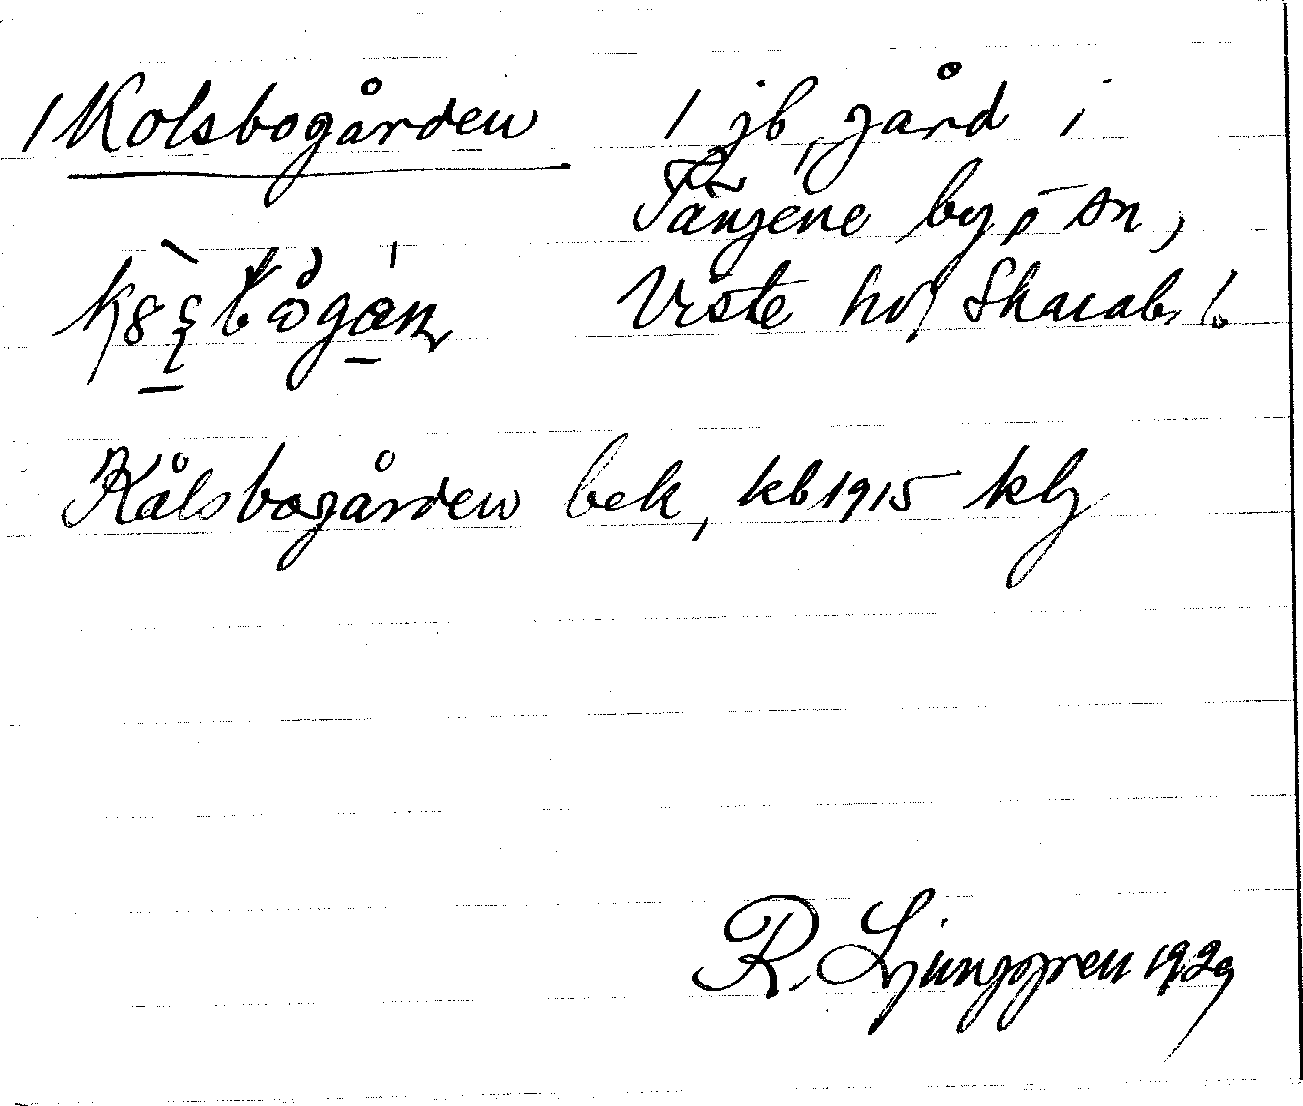 / Kolsbogården
1 jb, gård i
Tängene by o sn,
Viste hd Skarab. l.
Kålsbogården bek, kb 1915 klg
R. Ljunggren 1929